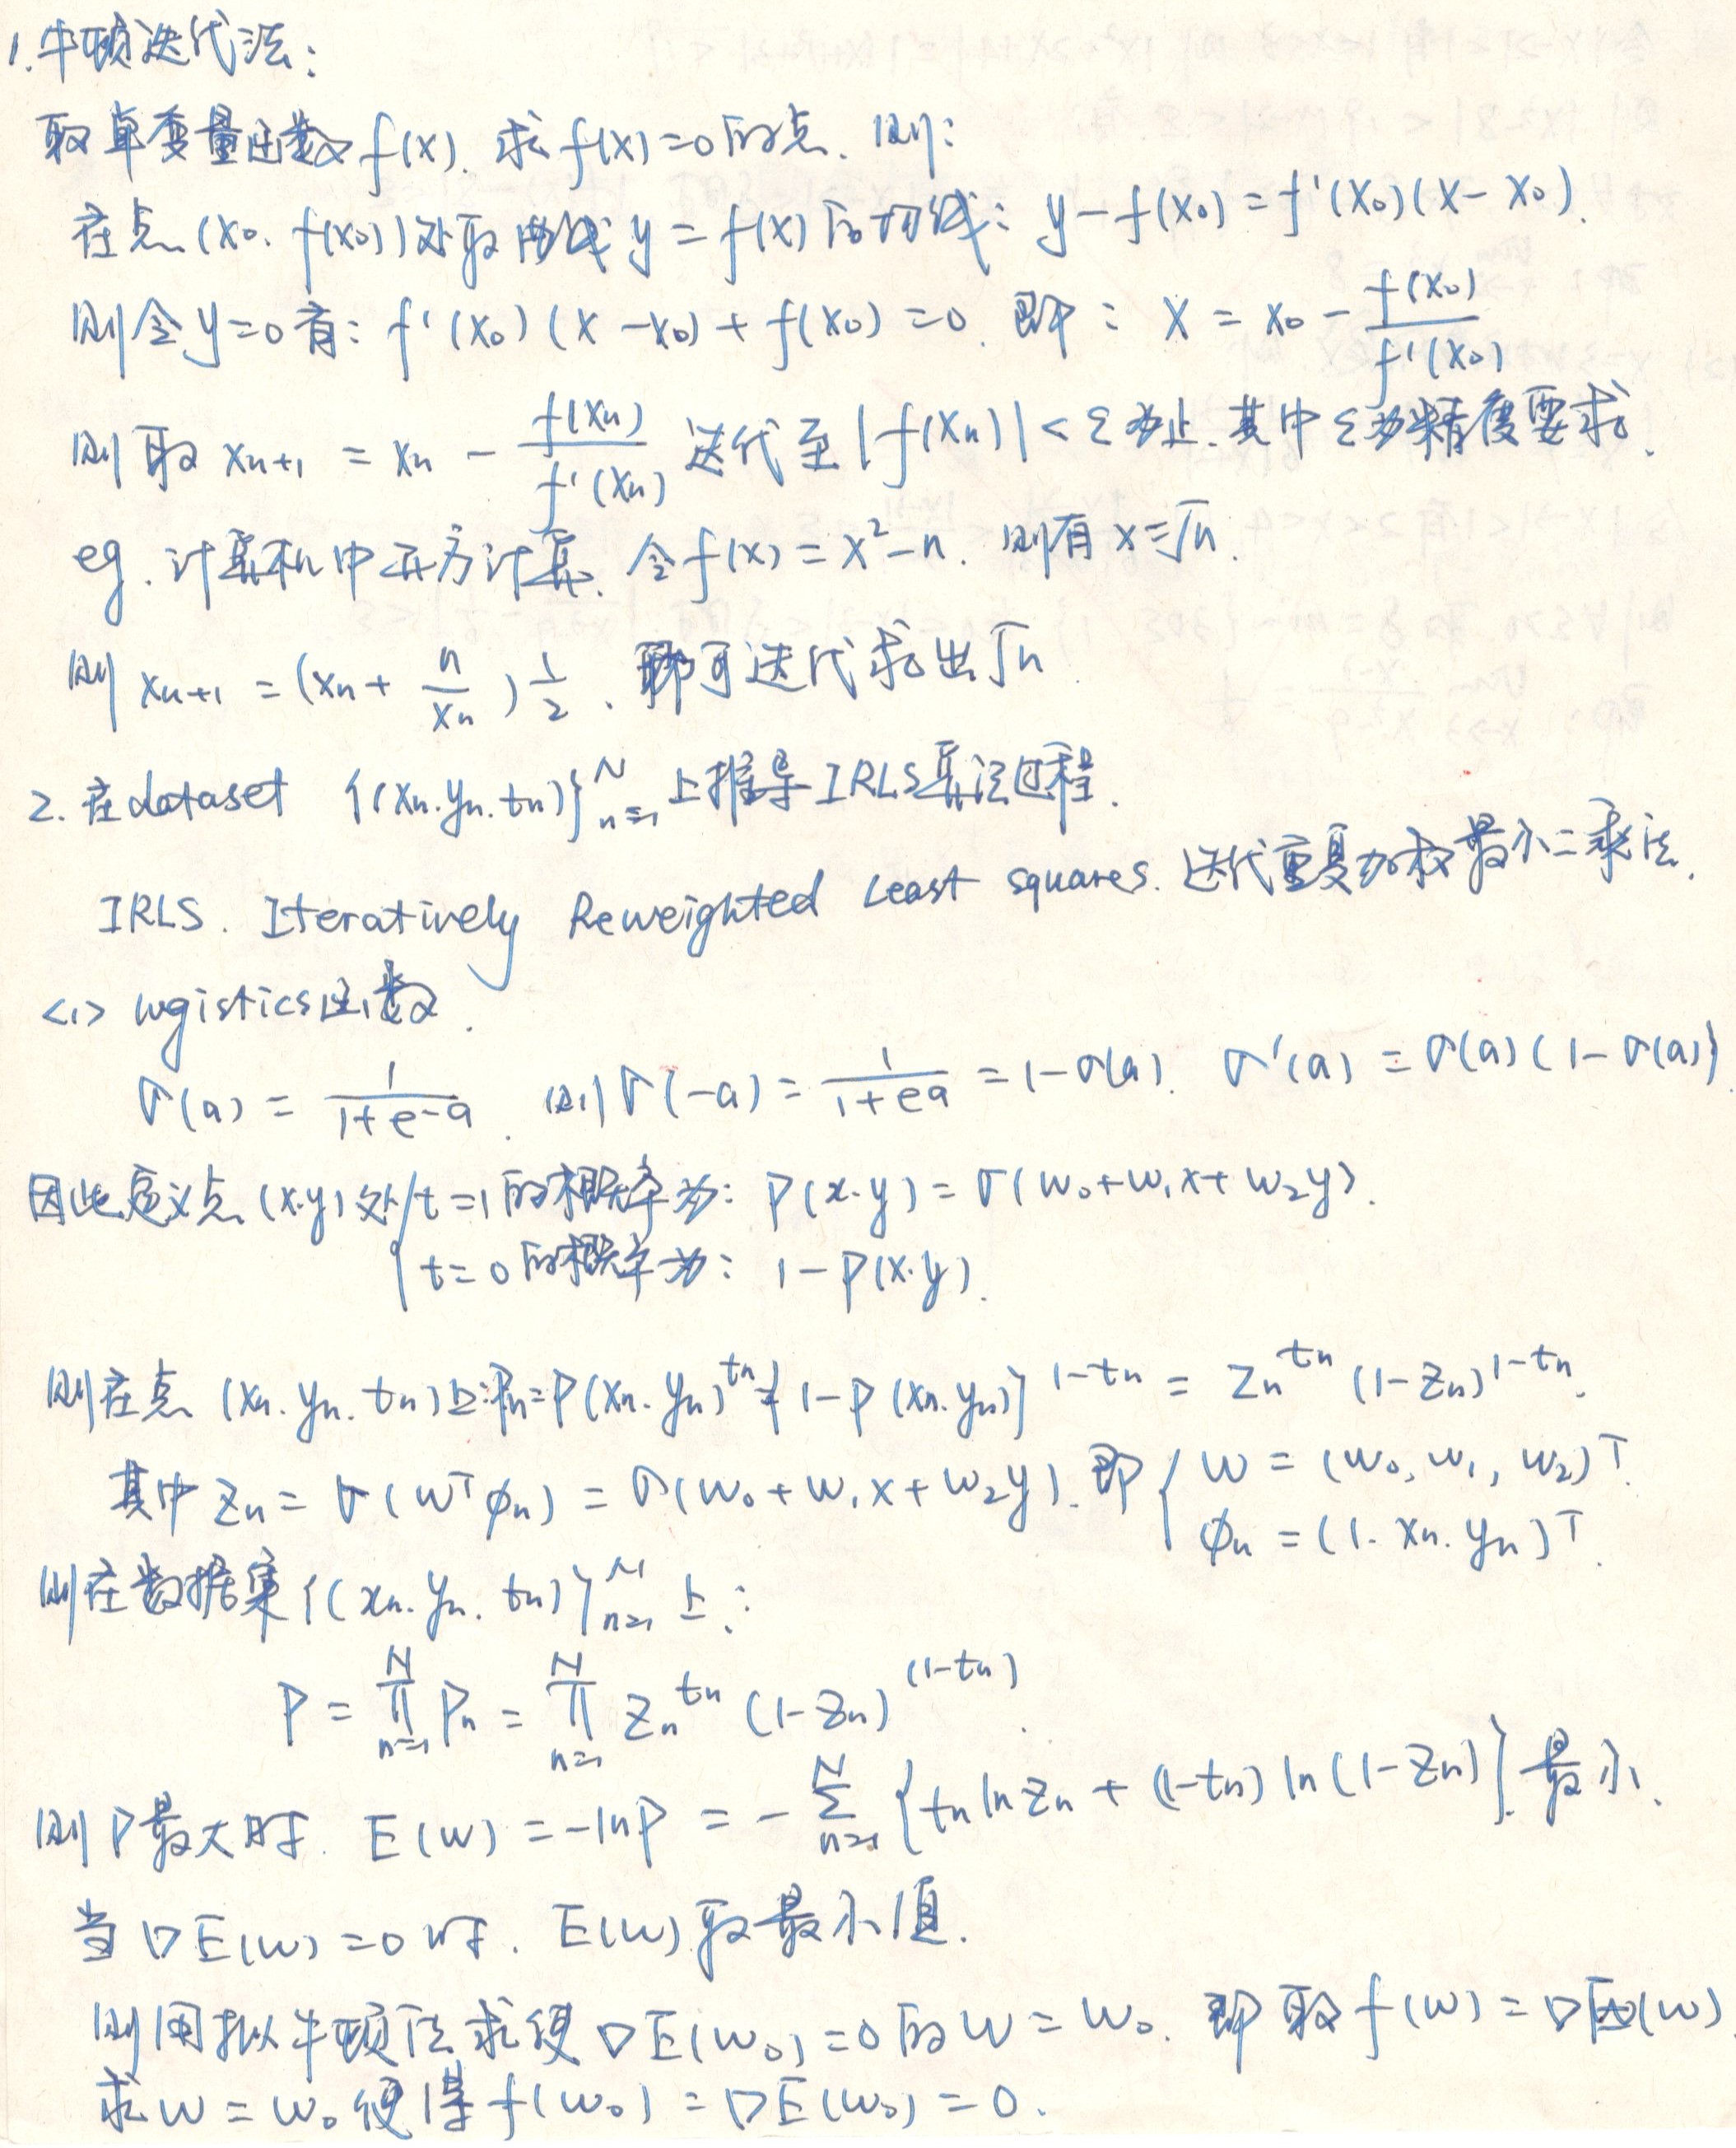 1. 牛顿迭代法：
取单变量函数 f(x). 求 f(x)=0 的点. 则:
在点 (x₀. f(x₀)) 处取曲线 y = f(x) 的切线: y - f(x₀) = f'(x₀)(x - x₀).
则令 y=0 有: f'(x₀)(x - x₀) + f(x₀) = 0. 即: x = x₀ - f(x₀)/f'(x₀)
则取 xₙ₊₁ = xₙ - f(xₙ)/f'(xₙ) 迭代至 |f(xₙ)| < ε 为止. 其中 ε 为精度要求.
eg. 计算机中开方计算. 令 f(x) = x² - n. 则有 x = √n.
则 xₙ₊₁ = (xₙ + n/xₙ) 1/2. 即可迭代求出 √n
2. 在 dataset {(xₙ. yₙ. tₙ)}ₙ₌₁ᴺ 上推导 IRLS 算法过程.
IRLS. Iteratively Reweighted Least squares. 迭代重复加权最小二乘法.
<1> logistics函数.
σ(a) = 1/(1+e⁻ᵃ). 则 σ(-a) = 1/(1+eᵃ) = 1-σ(a). σ'(a) = σ(a)(1-σ(a))
因此定义点 (x.y) 处 { t=1 的概率为: P(x.y) = σ(w₀+w₁x+w₂y).
t=0 的概率为: 1-P(x.y).
则在点 (xₙ. yₙ. tₙ) 上: Pₙ = P(xₙ. yₙ)^tₙ {1-P(xₙ. yₙ)}^1-tₙ = zₙ^tₙ (1-zₙ)^1-tₙ.
其中 zₙ = σ(wᵀφₙ) = σ(w₀+w₁x+w₂y). 即 { w = (w₀, w₁, w₂)ᵀ.
φₙ = (1. xₙ. yₙ)ᵀ.
则在数据集 {(xₙ. yₙ. tₙ)}ₙ₌₁ᴺ 上:
P = ∏ₙ₌₁ᴺ Pₙ = ∏ₙ₌₁ᴺ zₙ^tₙ (1-zₙ)^(1-tₙ).
则 P 最大时. E(w) = -lnP = -∑ₙ₌₁ᴺ {tₙ ln zₙ + (1-tₙ) ln(1-zₙ)}. 最小.
当 ∇E(w) = 0 时. E(w) 取最小值.
则用拟牛顿法求使 ∇E(w₀) = 0 的 w = w₀. 即取 f(w) = ∇E(w)
求 w = w₀ 使得 f(w₀) = ∇E(w₀) = 0.